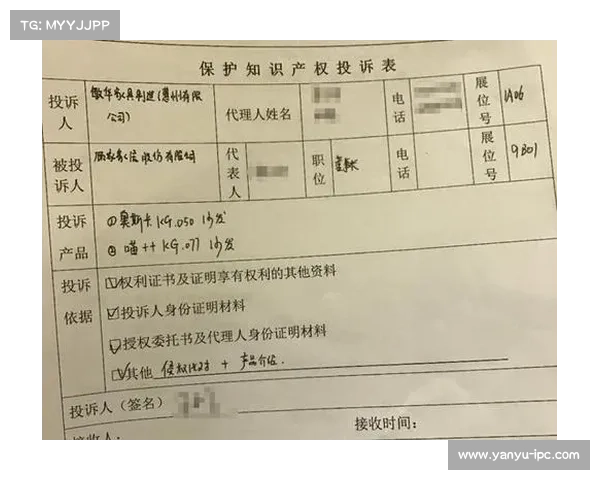 TG: MYYJJPP
保护知识产权投诉表
投诉人
敏华家具制造(惠州)有限公司)
代理人姓名
电话
展位号
1A06
被投诉人
股份有限公司
代表人
职位
电话
展位号
9B01
投诉产品
①奥斯卡KG.050 沙发
②喵++ KG.077 沙发
投诉依据
☑权利证书及证明享有权利的其他资料
☑投诉人身份证明材料
☑授权委托书及代理人身份证明材料
☑其他 侵权比对 + 产品介绍.
投诉人（签名）
接收人：
接收时间：
www.yanyu-ipc.com